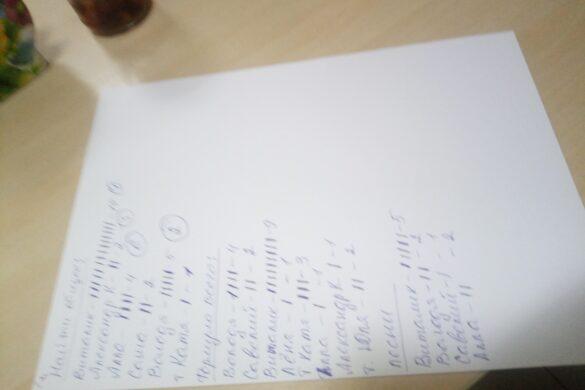 Виталик - IIIIIIIIIIIII
Александр К - II 2
Алла - IIII - 4
Саша - II - 2
Володя - IIIII - 5
т. Катя - I - 1
Володя - IIII - 4
Савелий - II - 2
Виталик - IIIIIIIII - 9
Лёна - I - 1
т Катя - III - 3
Алла - I - 1
Александр К I - 1
т. Юля - II - 2
песни
Виталик - IIIII - 5
Володя - II - 2
Савелий - I - 1
Алла - II - 2